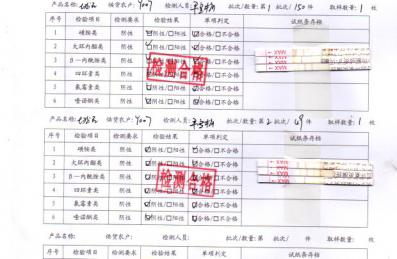 产品名称: 供货农户: Y007 检测人员: 批次/数量: 第 1 批次/ 150 件 取样数量: 1 枚
序号 检验项目 检测要求 检验结果 单项判定 试纸条存档
1 磺胺类 阴性 ☑阴性/□阳性 ☑合格/□不合格
2 大环内酯类 阴性 ☑阴性/□阳性 ☑合格/□不合格
3 β-内酰胺类 阴性 ☑阴性/□阳性 ☑合格/□不合格
4 四环素类 阴性 ☑阴性/□阳性 ☑合格/□不合格
5 氟霉素类 阴性 ☑阴性/□阳性 ☑合格/□不合格
6 喹诺酮类 阴性 ☑阴性/□阳性 ☑合格/□不合格
检测合格
MAX
MAX
MAX
产品名称: 供货农户: Y007 检测人员: 批次/数量: 第 2 批次/ 49 件 取样数量: 1 枚
序号 检验项目 检测要求 检验结果 单项判定 试纸条存档
1 磺胺类 阴性 ☑阴性/□阳性 ☑合格/□不合格
2 大环内酯类 阴性 ☑阴性/□阳性 ☑合格/□不合格
3 β-内酰胺类 阴性 ☑阴性/□阳性 ☑合格/□不合格
4 四环素类 阴性 ☑阴性/□阳性 ☑合格/□不合格
5 氟霉素类 阴性 ☑阴性/□阳性 ☑合格/□不合格
6 喹诺酮类 阴性 ☑阴性/□阳性 ☑合格/□不合格
检测合格
MAX
MAX
MAX
产品名称: 供货农户: 检测人员: 批次/数量: 第 批次/ 件 取样数量: 枚
序号 检验项目 检测要求 检验结果 单项判定 试纸条存档
1 磺胺类 阴性 □阴性/□阳性 □合格/□不合格